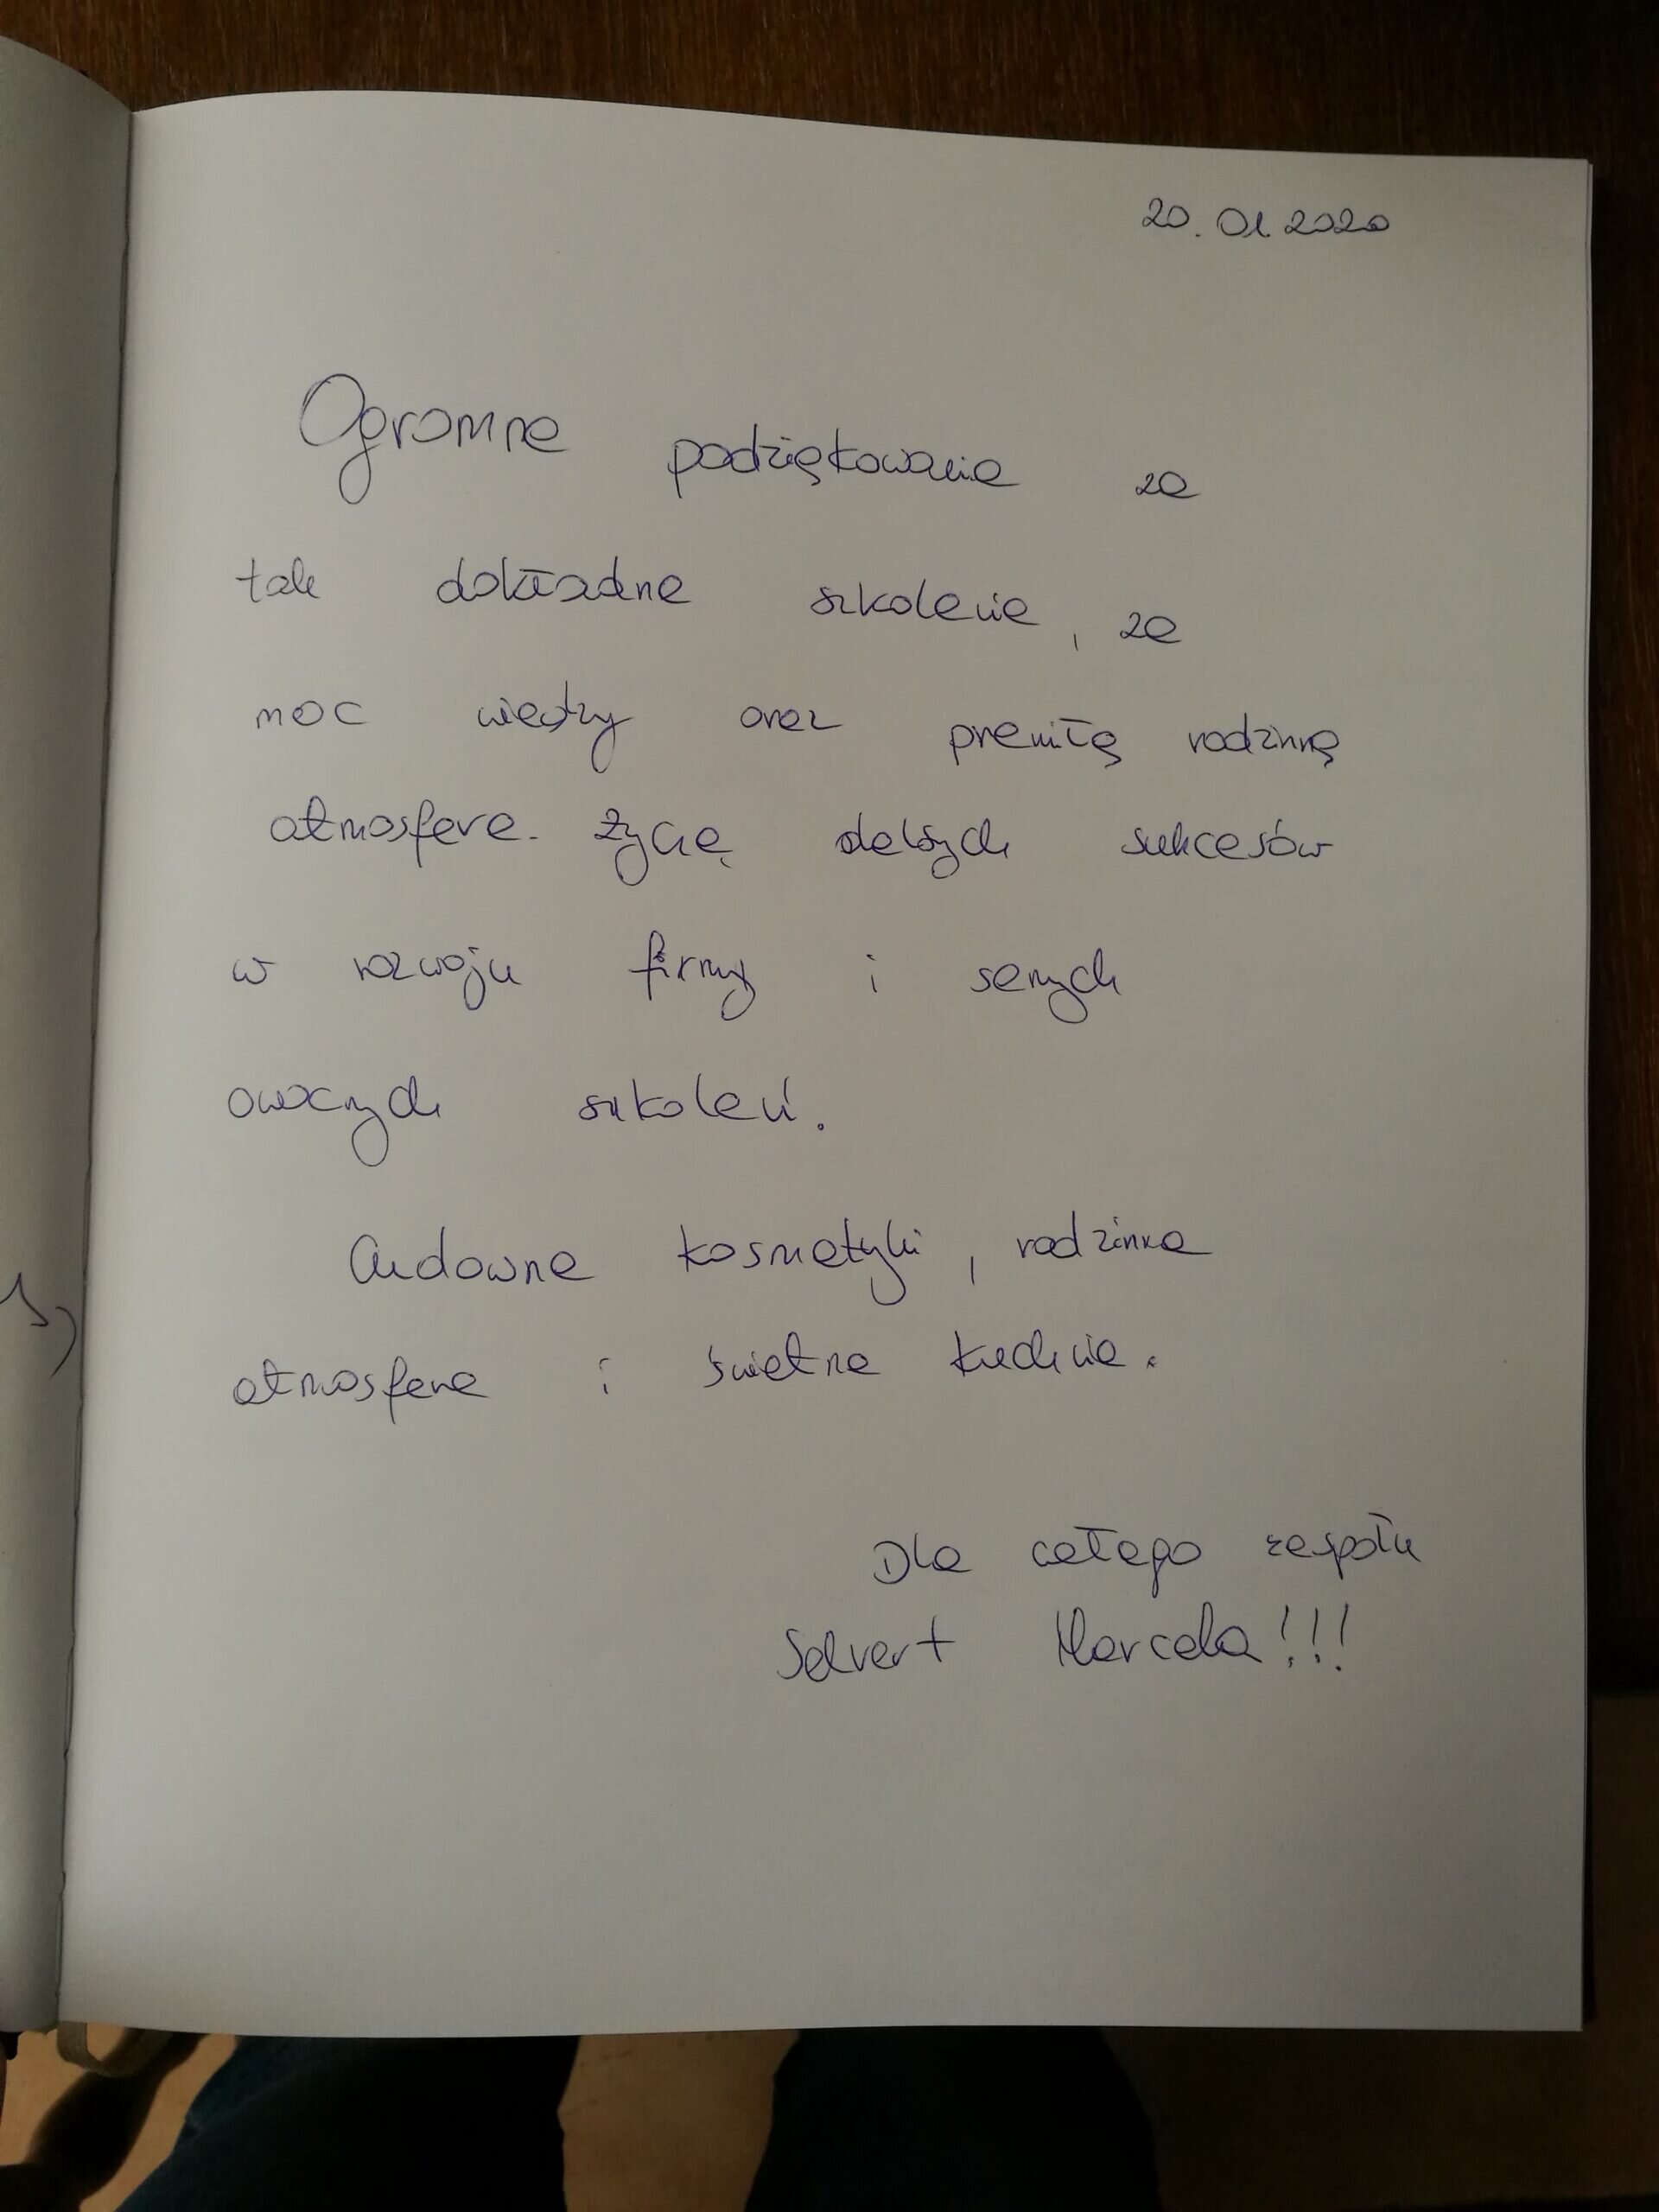 20.01.2020
Ogromne podziękowania za
tak dokładne szkolenie, za
moc wiedzy oraz przemiłą rodzinną
atmosferę. Życię dalszych sukcesów
w rozwoju firmy i samych
owocnych szkoleń.
Cudowne kosmetyki, rodzinna
atmosfera i świetna kuchnia.
Dla całego zespołu
Selvert Marcela!!!